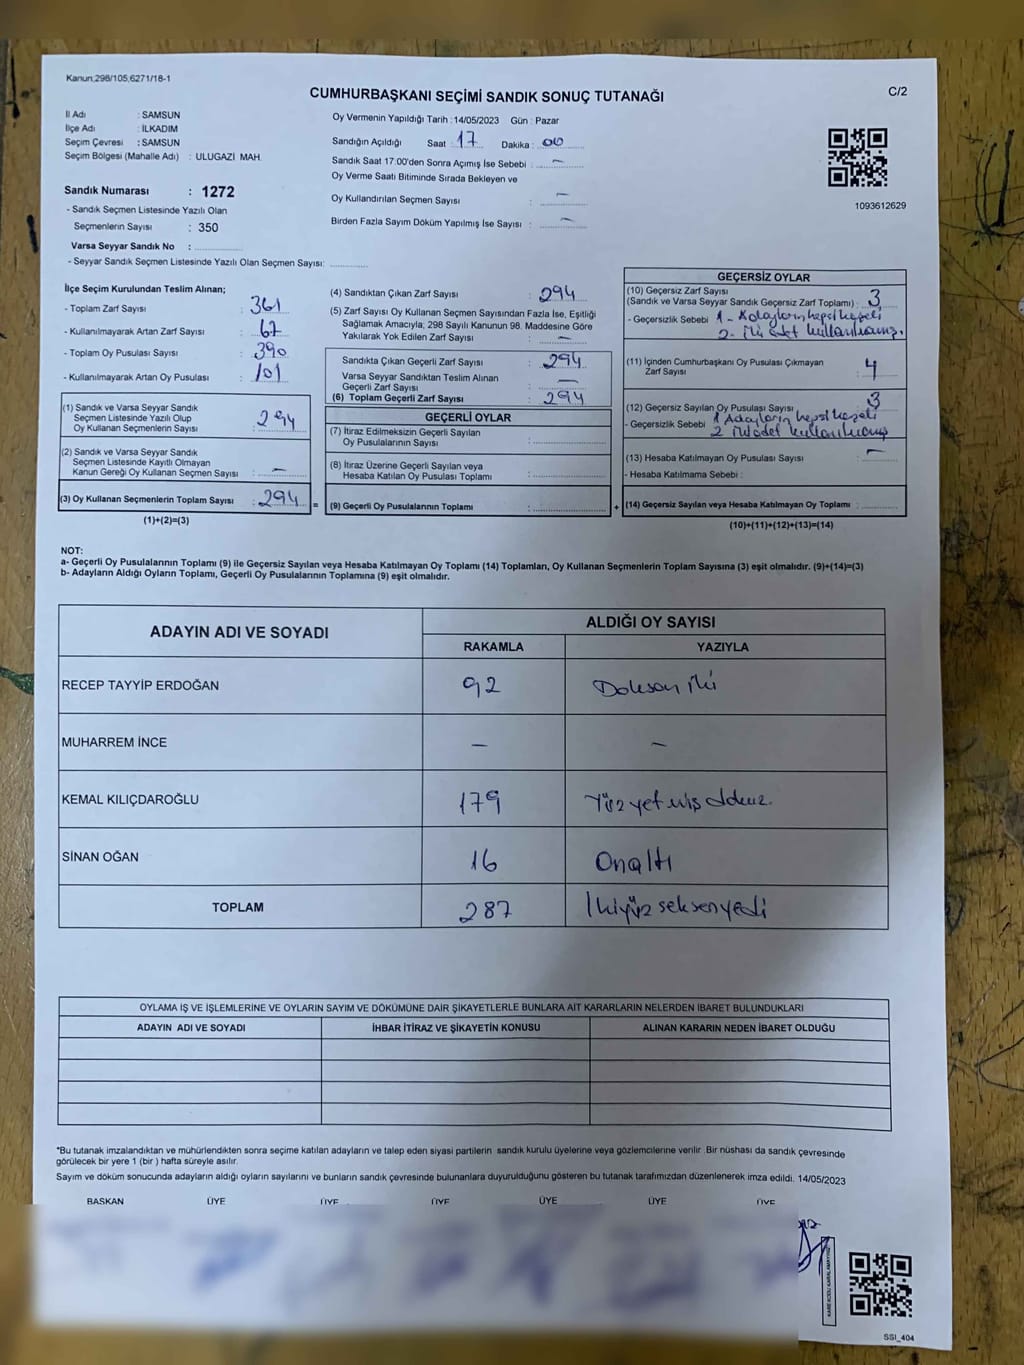 Kanun;298/105;6271/18-1
CUMHURBAŞKANI SEÇİMİ SANDIK SONUÇ TUTANAĞI
C/2
İl Adı : SAMSUN
İlçe Adı : İLKADIM
Seçim Çevresi : SAMSUN
Seçim Bölgesi (Mahalle Adı) : ULUGAZİ MAH.
Sandık Numarası : 1272
- Sandık Seçmen Listesinde Yazılı Olan
Seçmenlerin Sayısı : 350
Varsa Seyyar Sandık No :
- Seyyar Sandık Seçmen Listesinde Yazılı Olan Seçmen Sayısı:
Oy Vermenin Yapıldığı Tarih : 14/05/2023 Gün : Pazar
Sandığın Açıldığı Saat : 17 Dakika : 00
Sandık Saat 17:00'den Sonra Açımış İse Sebebi : -
Oy Verme Saati Bitiminde Sırada Bekleyen ve
Oy Kullandırılan Seçmen Sayısı : -
Birden Fazla Sayım Döküm Yapılmış İse Sayısı : -
1093612629
İlçe Seçim Kurulundan Teslim Alınan;
- Toplam Zarf Sayısı : 361
- Kullanılmayarak Artan Zarf Sayısı : 67
- Toplam Oy Pusulası Sayısı : 390
- Kullanılmayarak Artan Oy Pusulası : 101
(1) Sandık ve Varsa Seyyar Sandık
Seçmen Listesinde Yazılı Olup
Oy Kullanan Seçmenlerin Sayısı : 294
(2) Sandık ve Varsa Seyyar Sandık
Seçmen Listesinde Kayıtlı Olmayan
Kanun Gereği Oy Kullanan Seçmen Sayısı : -
(3) Oy Kullanan Seçmenlerin Toplam Sayısı : 294 =
(1)+(2)=(3)
(4) Sandıktan Çıkan Zarf Sayısı : 294
(5) Zarf Sayısı Oy Kullanan Seçmen Sayısından Fazla İse, Eşitliği
Sağlamak Amacıyla; 298 Sayılı Kanunun 98. Maddesine Göre
Yakılarak Yok Edilen Zarf Sayısı : -
Sandıkta Çıkan Geçerli Zarf Sayısı : 294
Varsa Seyyar Sandıktan Teslim Alınan
Geçerli Zarf Sayısı : -
(6) Toplam Geçerli Zarf Sayısı : 294
GEÇERLİ OYLAR
(7) İtiraz Edilmeksizin Geçerli Sayılan
Oy Pusulalarının Sayısı :
(8) İtiraz Üzerine Geçerli Sayılan veya
Hesaba Katılan Oy Pusulası Toplamı :
(9) Geçerli Oy Pusulalarının Toplamı : +
GEÇERSİZ OYLAR
(10) Geçersiz Zarf Sayısı
(Sandık ve Varsa Seyyar Sandık Geçersiz Zarf Toplamı) : 3
- Geçersizlik Sebebi 1 - Adayların hepsi kaşeli
2 - iki adet kullanılmış.
(11) İçinden Cumhurbaşkanı Oy Pusulası Çıkmayan
Zarf Sayısı : 4
(12) Geçersiz Sayılan Oy Pusulası Sayısı : 3
- Geçersizlik Sebebi 1 Adayların hepsi kaşeli
2 kullanılmış
(13) Hesaba Katılmayan Oy Pusulası Sayısı : -
- Hesaba Katılmama Sebebi :
(14) Geçersiz Sayılan veya Hesaba Katılmayan Oy Toplamı :
(10)+(11)+(12)+(13)=(14)
NOT:
a- Geçerli Oy Pusulalarının Toplamı (9) ile Geçersiz Sayılan veya Hesaba Katılmayan Oy Toplamı (14) Toplamları, Oy Kullanan Seçmenlerin Toplam Sayısına (3) eşit olmalıdır. (9)+(14)=(3)
b- Adayların Aldığı Oyların Toplamı, Geçerli Oy Pusulalarının Toplamına (9) eşit olmalıdır.
ADAYIN ADI VE SOYADI ALDIĞI OY SAYISI
RAKAMLA YAZIYLA
RECEP TAYYİP ERDOĞAN 92 Doksan iki
MUHARREM İNCE - -
KEMAL KILIÇDAROĞLU 179 Yüz yetmiş dokuz.
SİNAN OĞAN 16 Onaltı
TOPLAM 287 İkiyüz seksen yedi
OYLAMA İŞ VE İŞLEMLERİNE VE OYLARIN SAYIM VE DÖKÜMÜNE DAİR ŞİKAYETLERLE BUNLARA AİT KARARLARIN NELERDEN İBARET BULUNDUKLARI
ADAYIN ADI VE SOYADI İHBAR İTİRAZ VE ŞİKAYETİN KONUSU ALINAN KARARIN NEDEN İBARET OLDUĞU
*Bu tutanak imzalandıktan ve mühürlendikten sonra seçime katılan adayların ve talep eden siyasi partilerin sandık kurulu üyelerine veya gözlemcilerine verilir. Bir nüshası da sandık çevresinde
görülecek bir yere 1 (bir) hafta süreyle asılır.
Sayım ve döküm sonucunda adayların aldığı oyların sayılarını ve bunların sandık çevresinde bulunanlara duyurulduğunu gösteren bu tutanak tarafımızdan düzenlenerek imza edildi. 14/05/2023
BAŞKAN ÜYE ÜYE ÜYE ÜYE ÜYE ÜYE
KARE KODU KARALAMAYINIZ
SSI_404